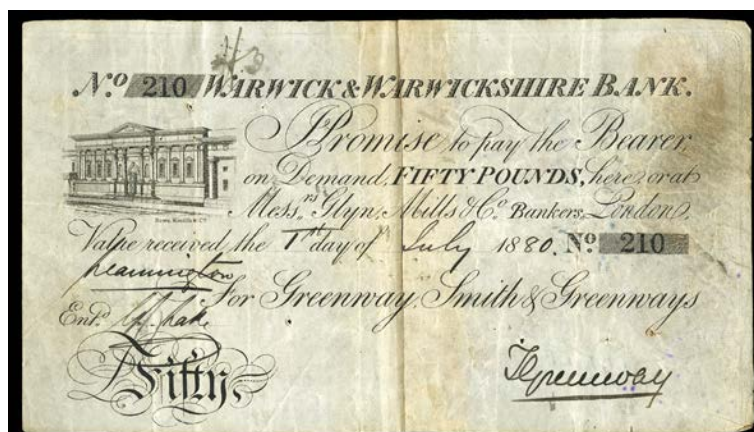 No. 210 WARWICK & WARWICKSHIRE BANK.
I Promise to pay the Bearer,
on Demand, FIFTY POUNDS, here or at
Messrs. Glyn, Mills & Co. Bankers, London.
Value received, the 1st day of July 1880. No. 210
Leamington
For Greenway, Smith & Greenways
Entd.
Fifty
Greenway